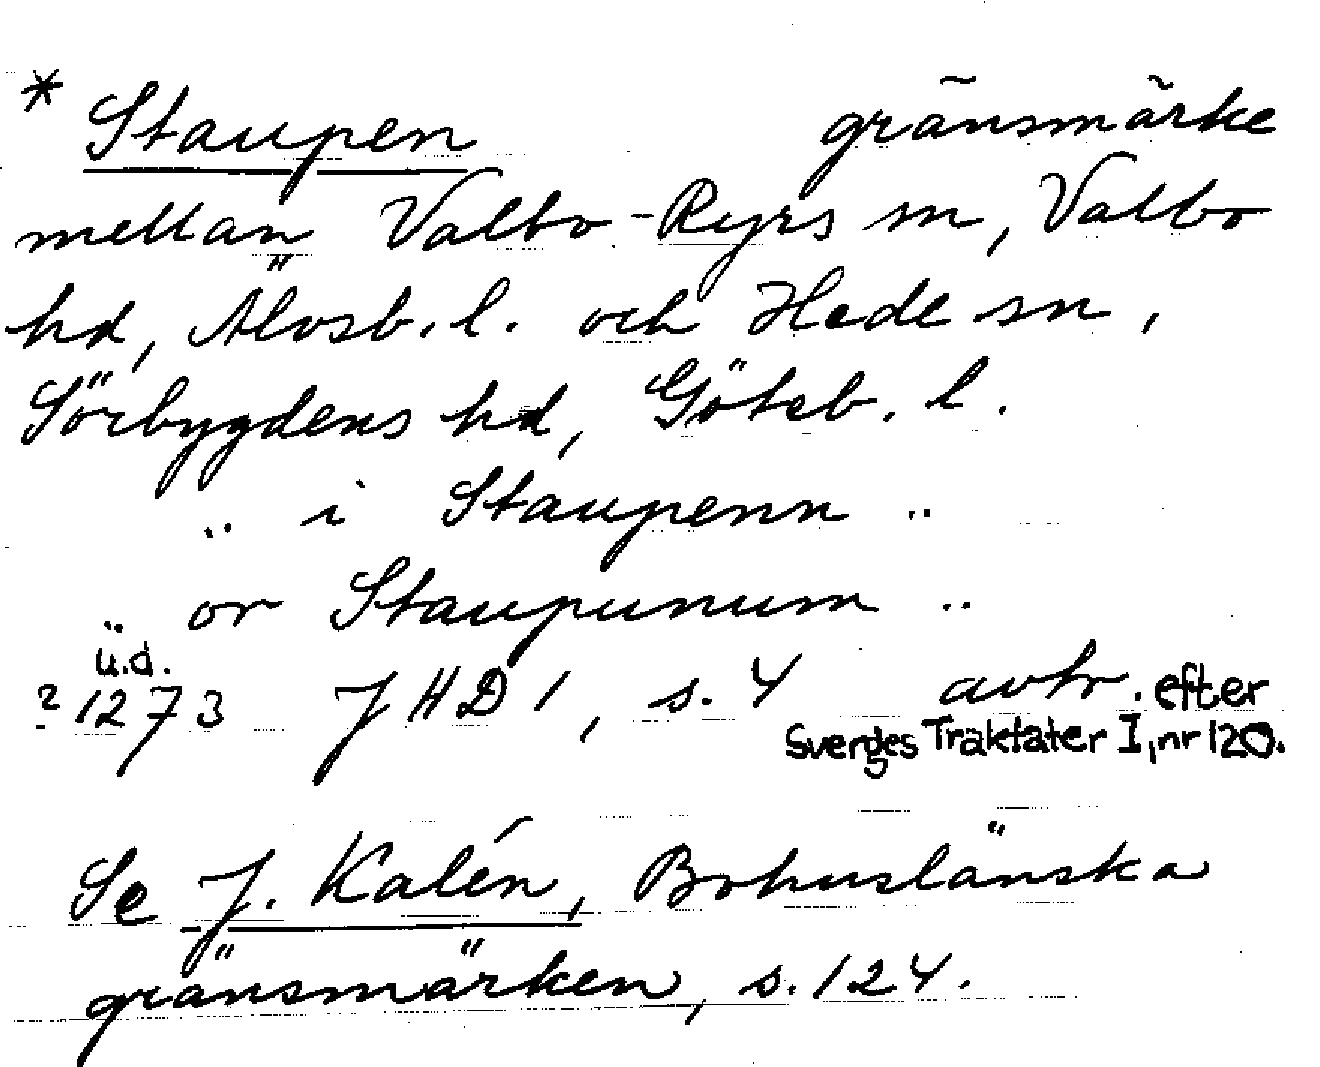 * Staupen gränsmärke
mellan Valbo-Ryrs sn, Valbo
hd, Älvsb. l. och Hede sn,
Sörbygdens hd, Göteb. l.
.. i Staupenn ..
.. or Staupunum ..
u.d.
? 1273 JHD 1, s. 4 avtr. efter
Sverges Traktater I, nr 120.
Se J. Kalén, Bohuslänska
gränsmärken, s. 124.